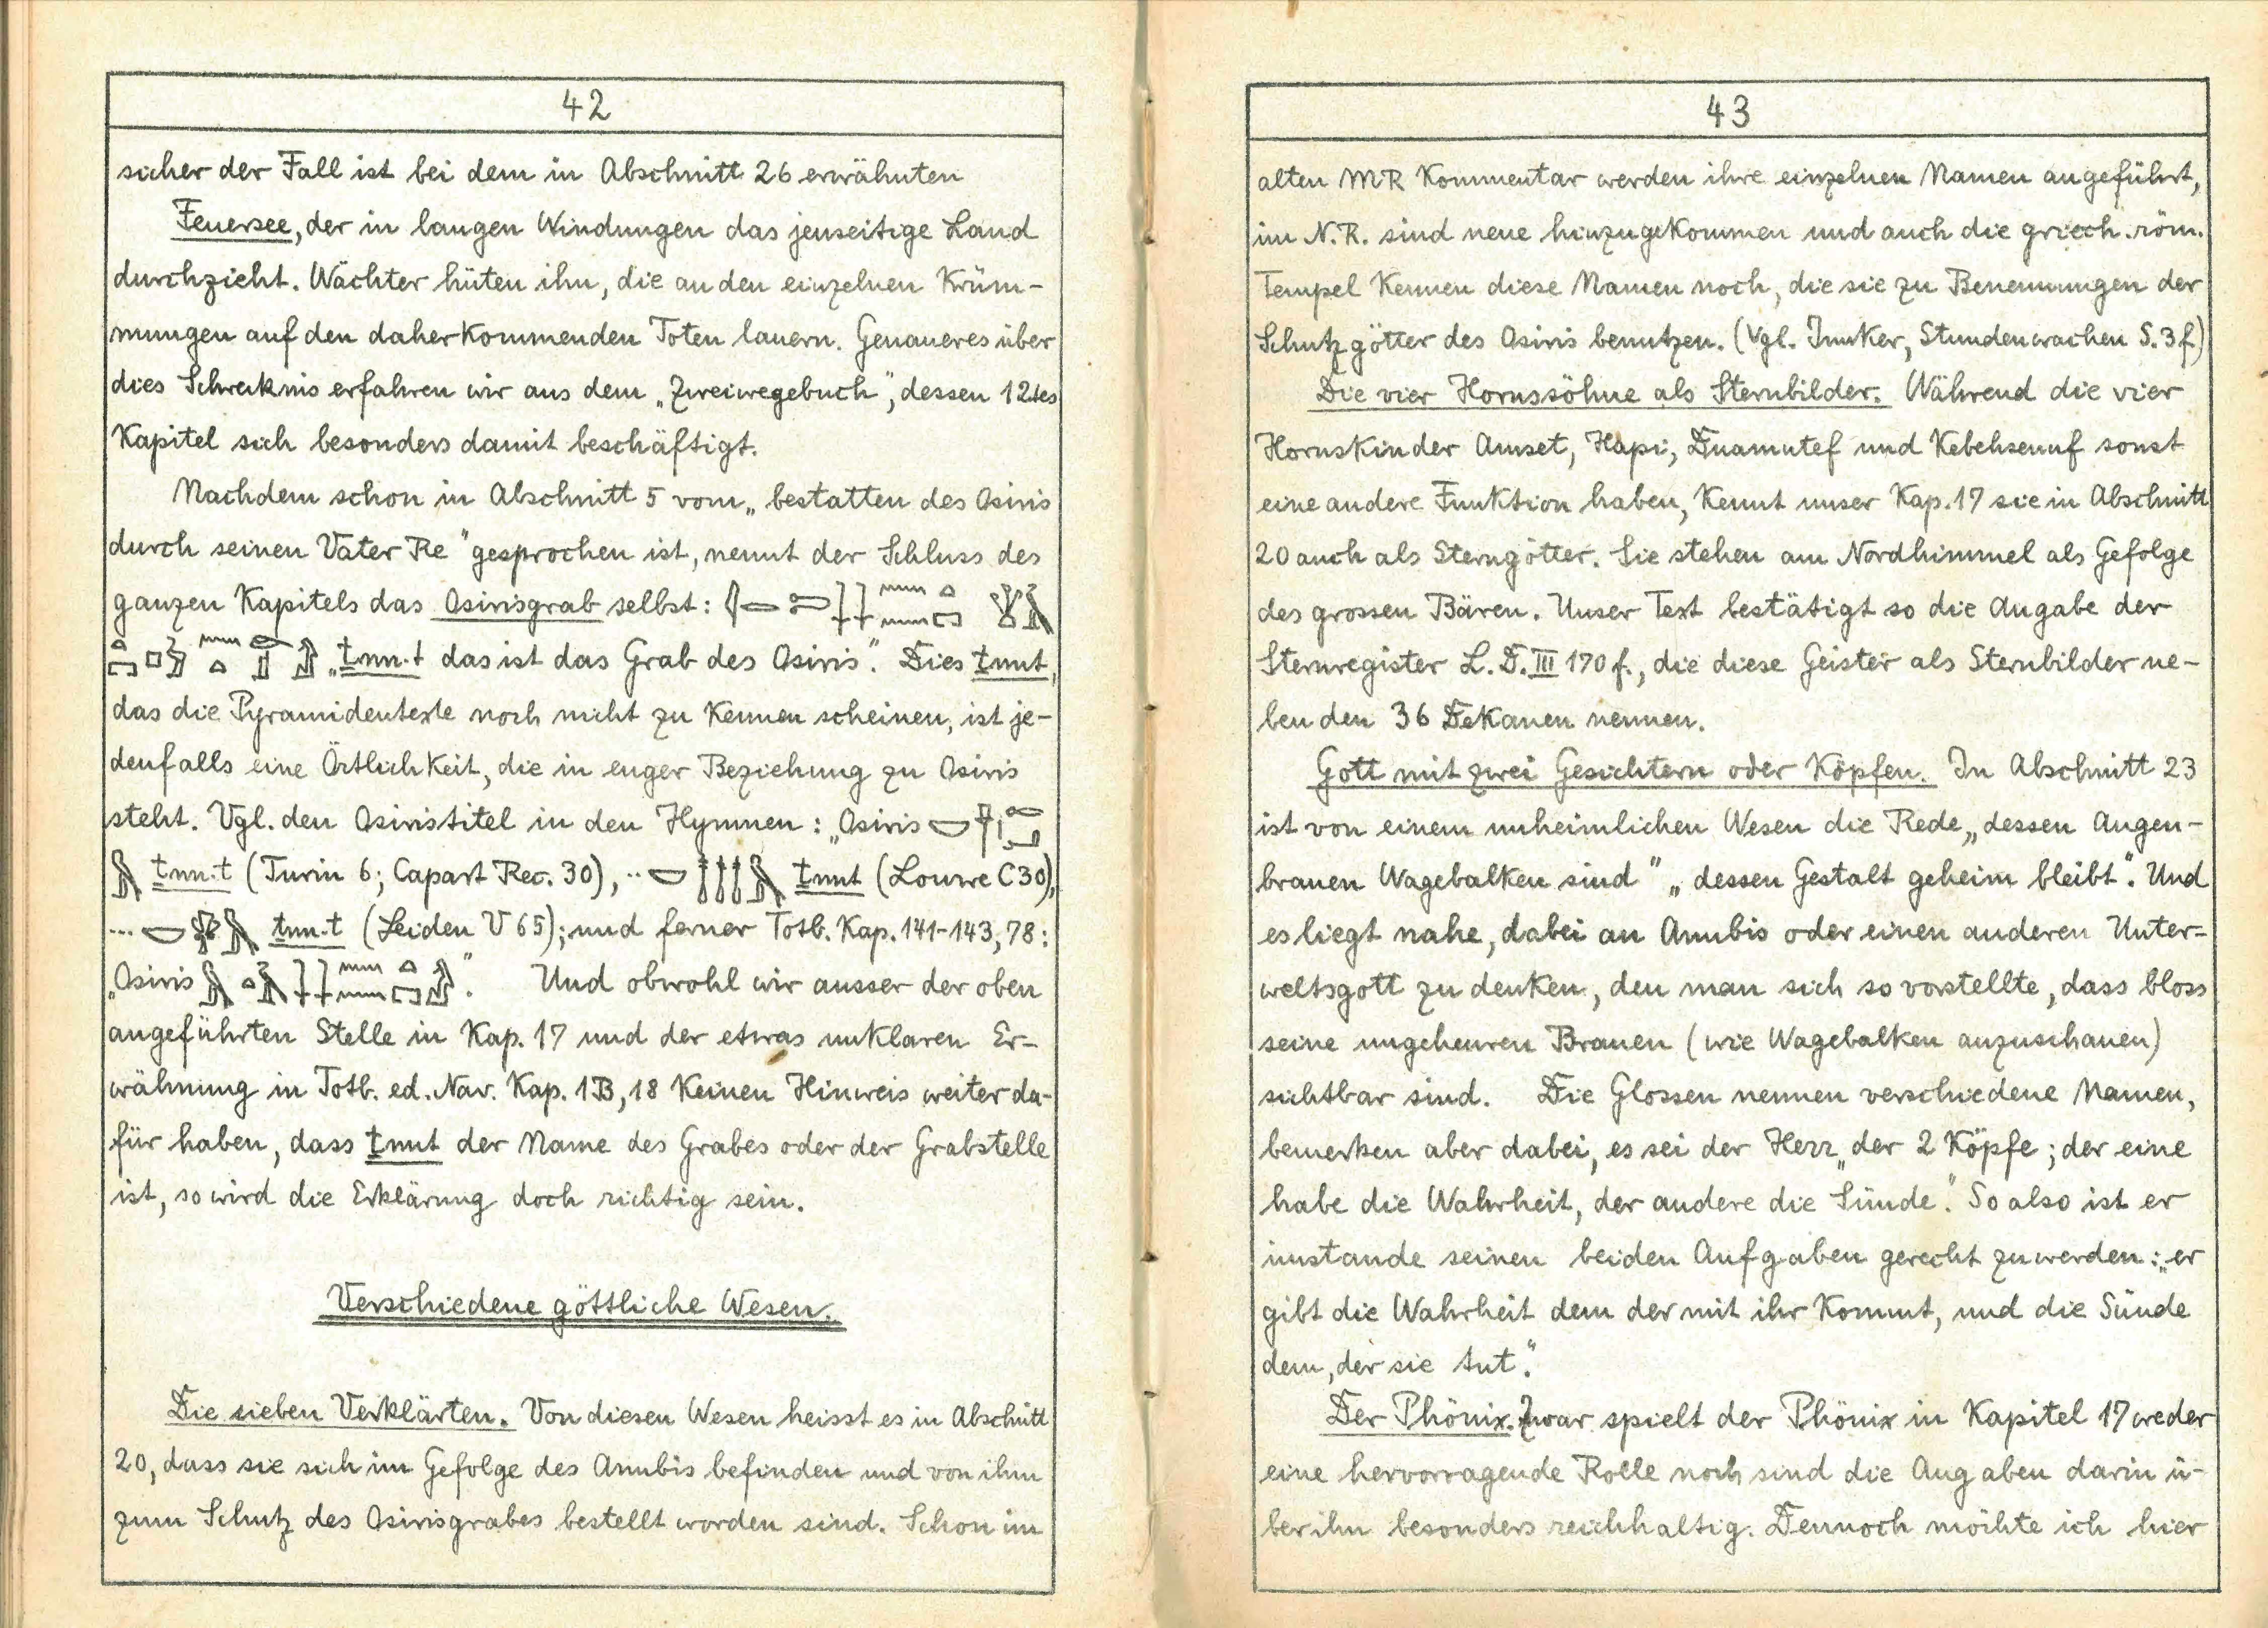 42
sicher der Fall ist bei dem in Abschnitt 26 erwähnten
Feuersee, der in langen Windungen das jenseitige Land
durchzieht. Wächter hüten ihn, die an den einzelnen Krüm-
mungen auf den daherkommenden Toten lauern. Genaueres über
dies Schreknis erfahren wir aus dem „Zweiwegebuch", dessen 12tes
Kapitel sich besonders damit beschäftigt.
Nachdem schon in Abschnitt 5 vom „bestatten des Osiris
durch seinen Vater Re" gesprochen ist, nennt der Schluss des
ganzen Kapitels das Osirisgrab selbst:
„ṯnn.t das ist das Grab des Osiris". Dies ṯnnt,
das die Pyramidentexte noch nicht zu kennen scheinen, ist je-
denfalls eine Örtlichkeit, die in enger Beziehung zu Osiris
steht. Vgl. den Osiristitel in den Hymnen: „Osiris
ṯnn.t (Turin 6; Capart Rec. 30), .. ṯnnt (Louvre C30),
... ṯnn.t (Leiden V 65); und ferner Totb. Kap. 141-143, 78:
„Osiris ". Und obwohl wir ausser der oben
angeführten Stelle in Kap. 17 und der etwas unklaren Er-
wähnung in Totb. ed. Nav. Kap. 1B, 18 keinen Hinweis weiter da-
für haben, dass ṯnnt der Name des Grabes oder der Grabstelle
ist, so wird die Erklärung doch richtig sein.
Verschiedene göttliche Wesen.
Die sieben Verklärten. Von diesen Wesen heisst es in Abschnitt
20, dass sie sich im Gefolge des Anubis befinden und von ihm
zum Schutz des Osirisgrabes bestellt worden sind. Schon im
43
alten MR Kommentar werden ihre einzelnen Namen angeführt,
im N.R. sind neue hinzugekommen und auch die griech. röm.
Tempel kennen diese Namen noch, die sie zu Benennungen der
Schutzgötter des Osiris benutzen. (Vgl. Junker, Stundenwachen S. 3f.)
Die vier Horussöhne als Sternbilder. Während die vier
Horuskinder Amset, Hapi, Duamutef und Kebehsenuf sonst
eine andere Funktion haben, kennt unser Kap. 17 sie in Abschnitt
20 auch als Sterngötter. Sie stehen am Nordhimmel als Gefolge
des grossen Bären. Unser Text bestätigt so die Angabe der
Sternregister L. D. III 170 f., die diese Geister als Sternbilder ne-
ben den 36 Dekanen nennen.
Gott mit zwei Gesichtern oder Köpfen. In Abschnitt 23
ist von einem unheimlichen Wesen die Rede „dessen Augen-
brauen Wagebalken sind" „dessen Gestalt geheim bleibt". Und
es liegt nahe, dabei an Anubis oder einen anderen Unter-
weltsgott zu denken, den man sich so vorstellte, dass bloss
seine ungeheuren Brauen (wie Wagebalken anzuschauen)
sichtbar sind. Die Glossen nennen verschiedene Namen,
bemerken aber dabei, es sei der Herr „der 2 Köpfe; der eine
habe die Wahrheit, der andere die Sünde". So also ist er
imstande seinen beiden Aufgaben gerecht zu werden: „er
gibt die Wahrheit dem der mit ihr kommt, und die Sünde
dem, der sie tut".
Der Phönix. Zwar spielt der Phönix in Kapitel 17 weder
eine hervorragende Rolle noch sind die Angaben darin ü-
ber ihn besonders reichhaltig. Dennoch möchte ich hier